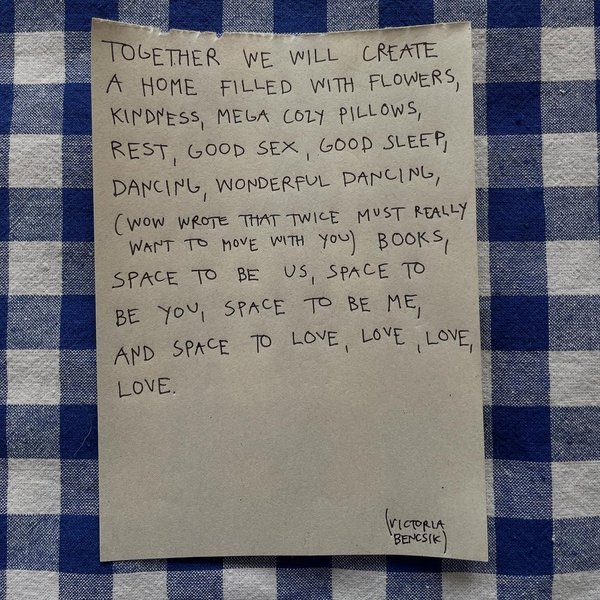 TOGETHER WE WILL CREATE
A HOME FILLED WITH FLOWERS,
KINDNESS, MEGA COZY PILLOWS,
REST, GOOD SEX, GOOD SLEEP,
DANCING, WONDERFUL DANCING,
(WOW WROTE THAT TWICE MUST REALLY
WANT TO MOVE WITH YOU) BOOKS,
SPACE TO BE US, SPACE TO
BE YOU, SPACE TO BE ME,
AND SPACE TO LOVE, LOVE, LOVE,
LOVE.
(VICTORIA
BENCSIK)